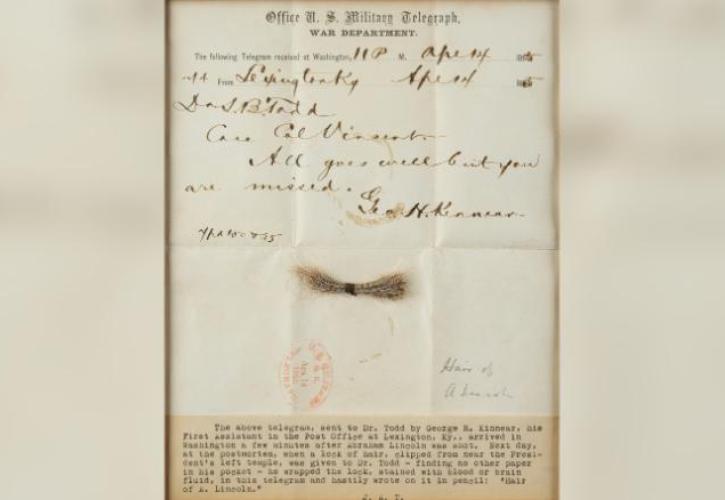 Office U. S. Military Telegraph,
WAR DEPARTMENT.
The following Telegram received at Washington, 11 P M. Apl 14 1865
From Lexington Ky Apl 14 1865
Dr L. B. Todd
Care Col Vinsent.
All goes well but you
are missed.
Geo. H. Kinnear.
Hair of
A Lincoln
The above telegram, sent to Dr. Todd by George H. Kinnear, his
First Assistant in the Post Office at Lexington, Ky., arrived in
Washington a few minutes after Abraham Lincoln was shot. Next day,
at the postmortem, when a lock of hair, clipped from near the Presi-
dent's left temple, was given to Dr. Todd - finding no other paper
in his pocket - he wrapped the lock, stained with blood or brain
fluid, in this telegram and hastily wrote on it in pencil: "Hair
of A. Lincoln."